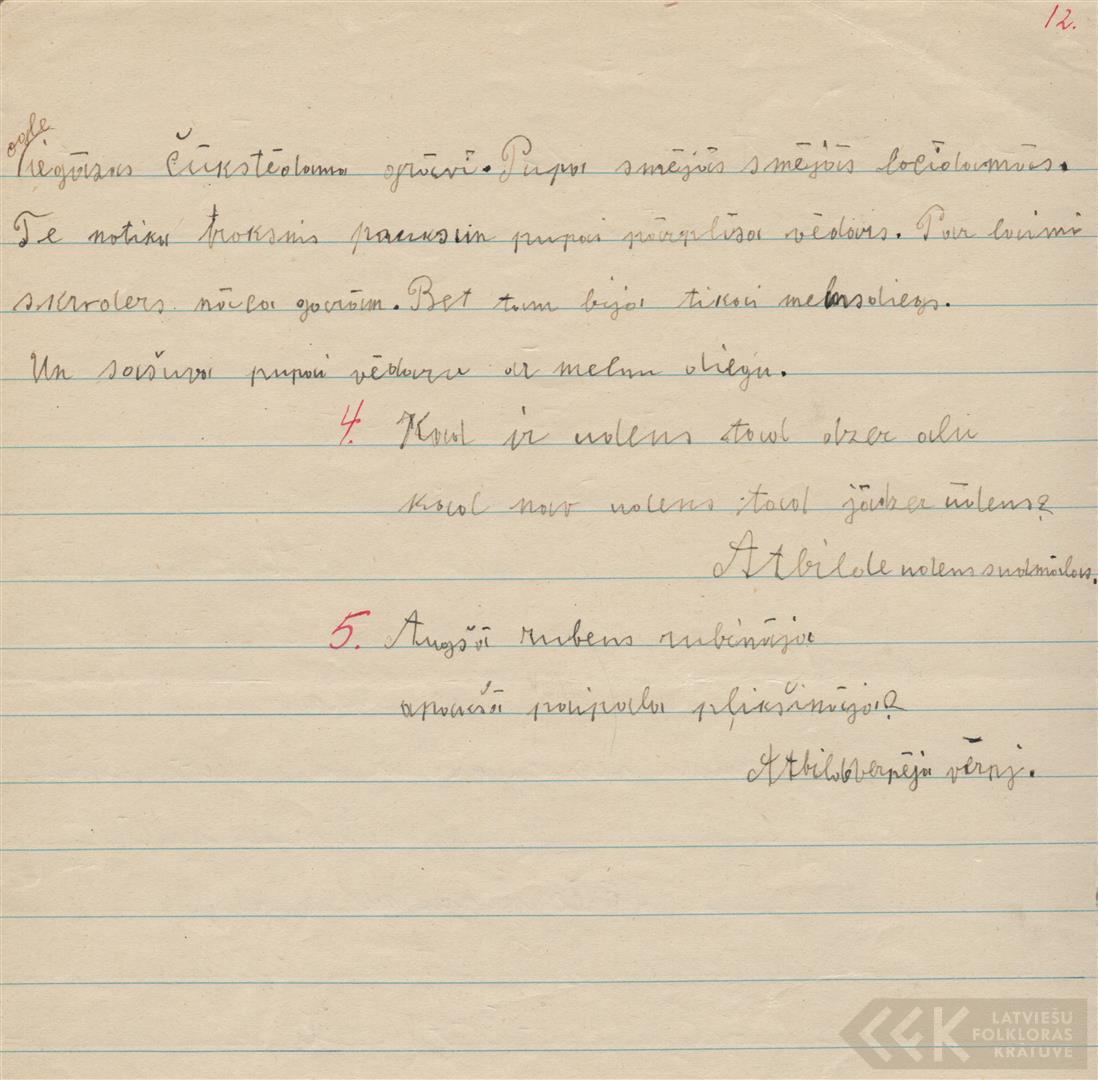 12.
ogle
iegāzas čūkstēdama grāvī. Pupa smējās smējās locīdamās.
Te notika troksnis pauksun pupai pārplīsa vēdars. Par laimi
skroders nāca garām. Bet tam bija tikai melnsdiegs.
Un sašuva pupai vēdaru ar melnu diegu.
4. Kad ir udens tad dzer alu
kad nav udens tad jādzer ūdens?
Atbilde udens sudmalas.
5. Augšā rubens rubināja
apakšā paipala pļikšināja?
Atbilde verpēja vērpj.
LATVIEŠU
FOLKLORAS
KRĀTUVE